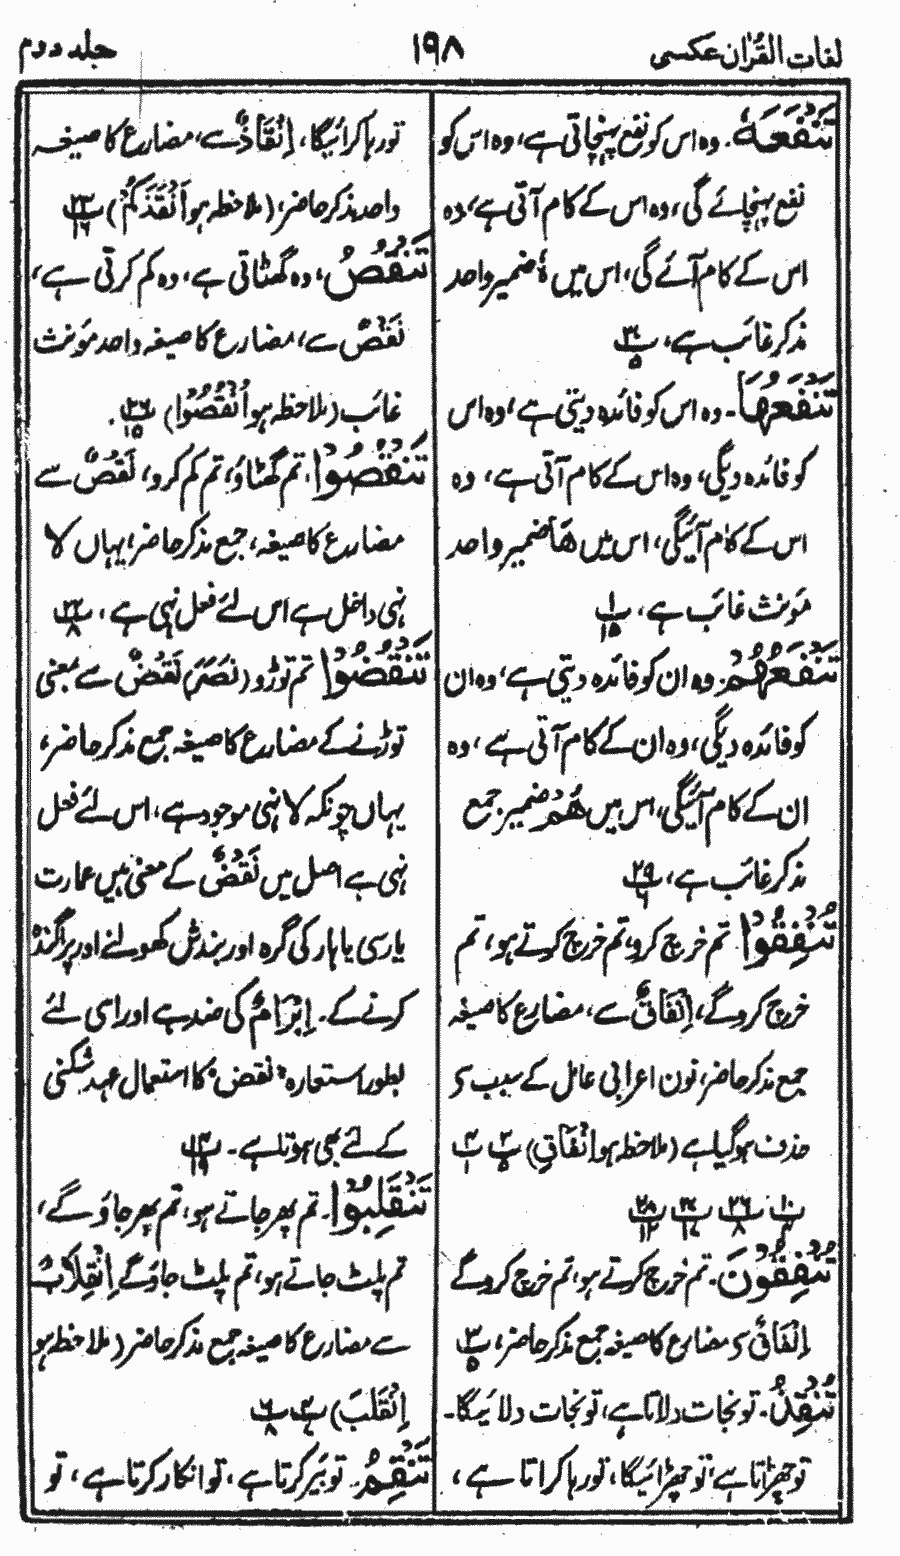 لغات القرآن عکسی
۱۹۸
جلد دوم
تَنْفَعَهٗ۔ وہ اس کو نفع پہنچاتی ہے، وہ اس کو
نفع پہنچائے گی، وہ اس کے کام آتی ہے، وہ
اس کے کام آئے گی، اس میں ہٗ ضمیر واحد
مذکر غائب ہے، پ۳۰ ۵
تَنْفَعُهَا۔ وہ اس کو فائدہ دیتی ہے، وہ اس
کو فائدہ دیگی، وہ اس کے کام آتی ہے، وہ
اس کے کام آئیگی، اس میں ھَا ضمیر واحد
مؤنث غائب ہے، پ۱ ۱۵
تَنْفَعُهُمْ۔ وہ ان کو فائدہ دیتی ہے، وہ ان
کو فائدہ دیگی، وہ ان کے کام آتی ہے، وہ
ان کے کام آئیگی، اس میں هُمْ ضمیر جمع
مذکر غائب ہے، پ۲۹ ۱۶
تُنْفِقُوْا۔ تم خرچ کرو، تم خرچ کرتے ہو، تم
خرچ کرو گے، اِنْفَاقٌ سے، مضارع کا صیغہ
جمع مذکر حاضر، نون اعرابی عامل کے سبب سے
حذف ہو گیا ہے (ملاحظہ ہو اِنْفَاقٍ) پ۳ ۵ پ۴ ۱
پ۱۰ پ۲۶ ۸ پ۲۷ ۱۷ پ۲۸ ۱۳
تُنْفِقُوْنَ۔ تم خرچ کرتے ہو، تم خرچ کرو گے
اِنْفَاقٌ سے مضارع کا صیغہ جمع مذکر حاضر، پ۳ ۵
تُنْقِذُ۔ تو نجات دلاتا ہے، تو نجات دلائیگا۔
تو چھڑاتا ہے، تو چھڑائیگا، تو رہا کراتا ہے،
تو رہا کرائیگا، اِنْقَاذٌ سے، مضارع کا صیغہ
واحد مذکر حاضر، (ملاحظہ ہو اَنْقَذَكُمْ) پ۲۳ ۱۶
تَنْقُصُ، وہ گھٹاتی ہے، وہ کم کرتی ہے،
نَقْصٌ سے، مضارع کا صیغہ واحد مؤنث
غائب (ملاحظہ ہو اُنْقُصُوْا) پ۲۶ ۱۵۔
تَنْقُصُوْا، تم گھٹاؤ، تم کم کرو، نَقْصٌ سے
مضارع کا صیغہ، جمع مذکر حاضر، یہاں لا
نہی داخل ہے اس لئے فعل نہی ہے، پ۱۲ ۸
تَنْقُضُوْا، تم توڑو (نَصَرَ) نَقْضٌ سے بمعنی
توڑنے کے مضارع کا صیغہ جمع مذکر حاضر،
یہاں چونکہ لا نہی موجود ہے، اس لئے فعل
نہی ہے اصل میں نَقْضٌ کے معنی ہیں عمارت
یا رسی یا ہار کی گرہ اور بندش کھولنے اور پراگندہ
کرنے کے۔ اِبْرَامٌ کی ضد ہے اور اسی لئے
بطور استعارہ "نقض" کا استعمال عہد شکنی
کے لئے بھی ہوتا ہے۔ پ۱۴ ۱۹
تَنْقَلِبُوْا۔ تم پھر جاتے ہو، تم پھر جاؤ گے،
تم پلٹ جاتے ہو، تم پلٹ جاؤ گے اِنْقِلَابٌ
سے مضارع کا صیغہ جمع مذکر حاضر (ملاحظہ ہو
اِنْقَلَبَ) پ۴ پ۶ ۸
تَنْقِمُ۔ تو بَیر کرتا ہے، تو انکار کرتا ہے، تو